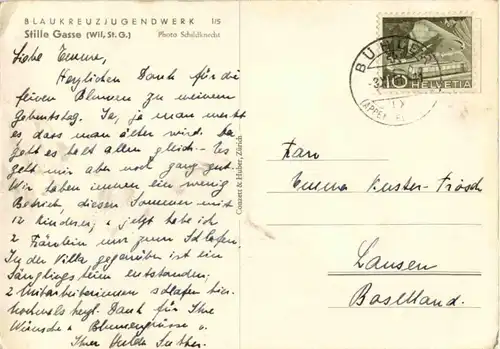 BLAUKREUZJUGENDWERK 1/5
Stille Gasse (Wil, St. G.) Photo Schildknecht
Liebe Emma,
Herzlichen Dank für die
feinen Blumen zu meinem
Geburtstag. Ja, ja man merkt
es, dass man älter wird. Da
geht es halt allen gleich – Es
geht mir aber noch ganz gut.
Wir haben immer ein wenig
Betrieb, diesen Sommer mit
12 Kindern, & jetzt habe ich
2 Fräulein nur zum Schlafen.
In der Villa gegenüber ist ein
Säuglingsheim entstanden,
2 Mitarbeiterinnen schlafen hier.
Nochmals herzl. Dank für Ihre
Wünsche & Blumengrüsse u.
Ihre Hulda Sutter.
Conzett & Huber, Zürich
BÜHLER
(APPENZELL)
10 HELVETIA
Frau
Emma Kuster-Frösch
Lausen
Baselland.